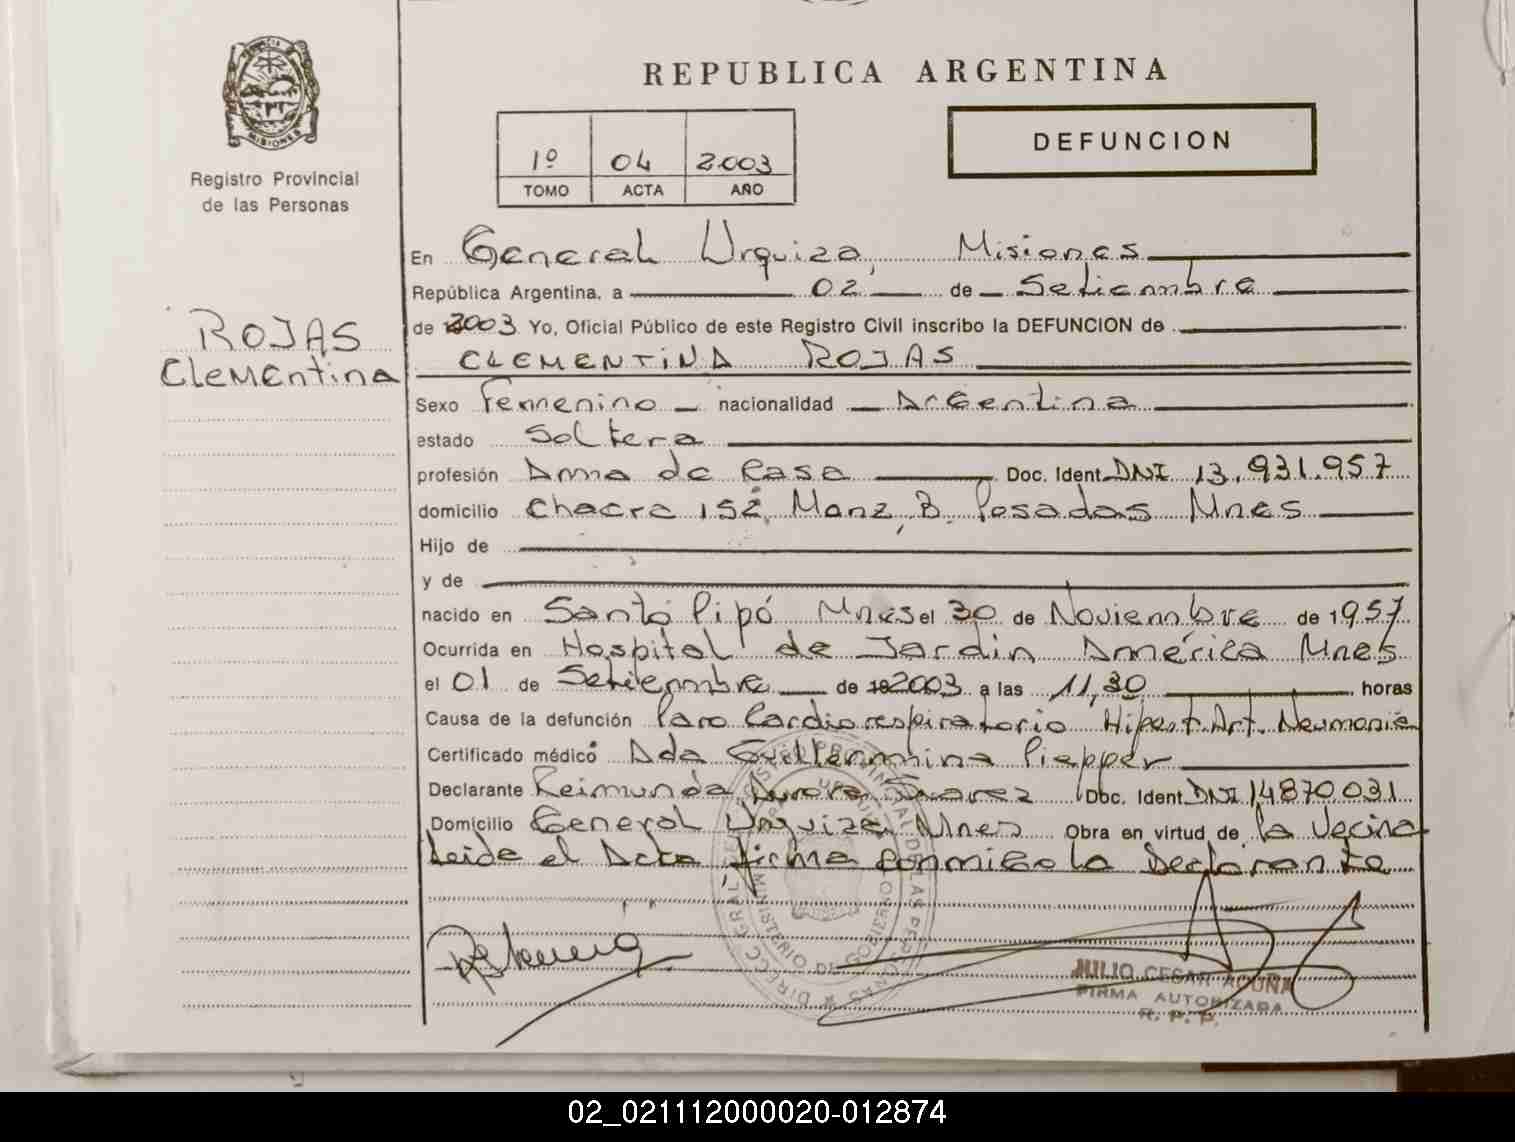 REPUBLICA ARGENTINA
MISIONES
Registro Provincial
de las Personas
1º 04 2003
TOMO ACTA AÑO
DEFUNCION
ROJAS
Clementina
En General Urquiza, Misiones
República Argentina, a 02 de Setiembre
de 2003 Yo, Oficial Público de este Registro Civil inscribo la DEFUNCION de
CLEMENTINA ROJAS
Sexo Femenino nacionalidad Argentina
estado Soltera
profesión Ama de Casa Doc. Ident. DNI 13.931.957
domicilio Chacra 152 Manz, B. Posadas Mnes
Hijo de
y de
nacido en Santo Pipó Mnes el 30 de Noviembre de 1957
Ocurrida en Hospital de Jardin América Mnes
el 01 de Setiembre de 2003 a las 11,30 horas
Causa de la defunción Paro Cardiorespiratorio Hipert. Art. Neumonia
Certificado médico Ada Guillermina Piepper
Declarante Reimunda Aurora Suarez Doc. Ident. DNI 14870.031
Domicilio General Urquiza Mnes Obra en virtud de la Vecina
Leida el Acta firma conmigo la Declarante
DIRECC. GRAL. REGISTRO PROVINCIAL DE LAS PERSONAS
MINISTERIO DE GOBIERNO
JULIO CESAR ACUÑA
FIRMA AUTORIZADA
R. P. P.
02_021112000020-012874